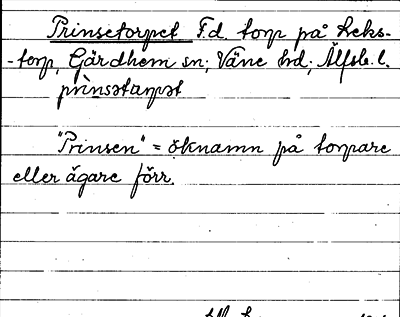 Prinsetorpet F.d. torp på Reks-
-torp, Gärdhem sn; Väne hd; Älfsb. l.
prìnsətarpət
"Prinsen" = öknamn på torpare
eller ägare förr.